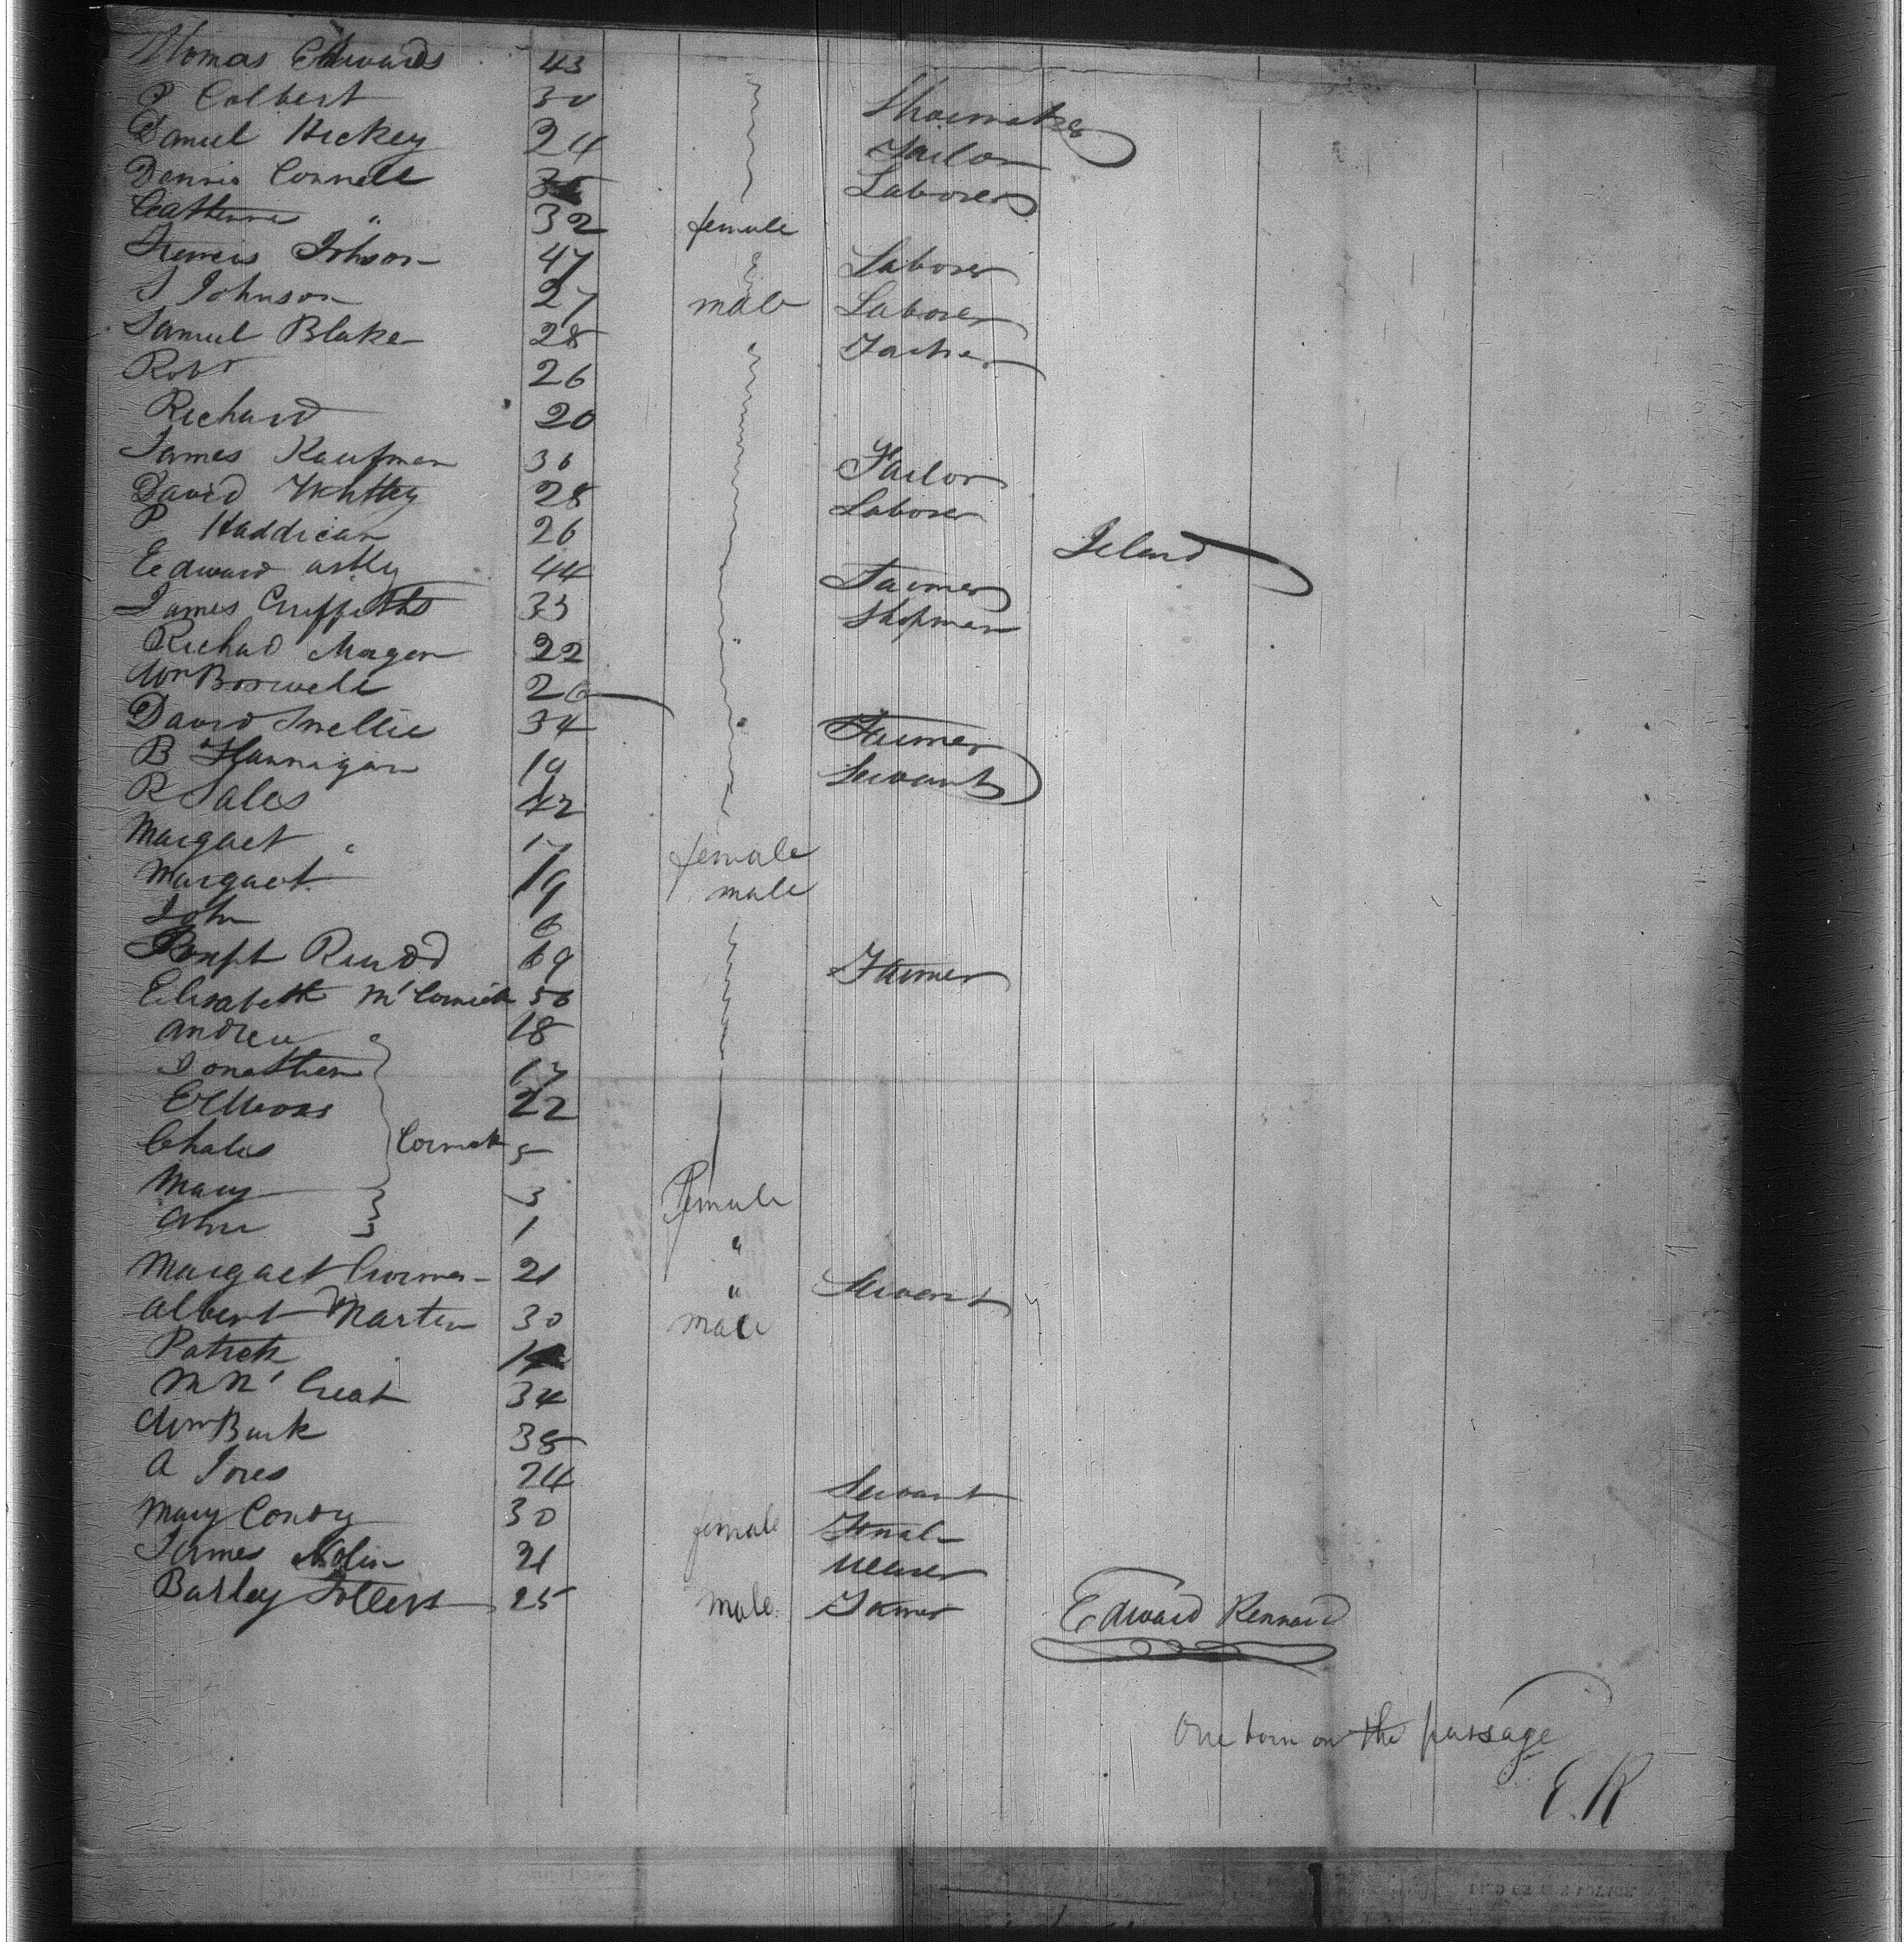 Thomas Edwards 43
P Colbert 30 Shoemaker
Daniel Hickey 24 Tailor
Dennis Connell Laborer
Catherine " 32 female
Francis Johson 47 Laborer
S Johnson 27 male Laborer
Samuel Blake 28
Robt 26
Richard 20
James Kaufman 36 Tailor
David Whitty 28 Laborer
P Haddican 26 Ireland
Edward astly 44 Farmer
James Griffiths 33 Shopman
Richad Morgan 22 "
Wm Boswell 26
David Smellie 34 " Farmer
B Flannigan 19 Servant
R Sales 42
Margaet " 17 female
Margaet 19 male
John 6
69 Farmer
Elisabeth McCormick 56
Andrew 18
Jonathan 17
22
Chales Cormick 5
Mary 3 Female
Ann 1 "
Margaet 21 " Servant
Albert Martin 30 male
Patrick
34
Wm Burk 38
A Jones 24 Servant
Mary Condy 30 female
James Nolin 21 Weaver
Bartley 25 male Farmer
Edward Kennard
One born on the passage
E.K